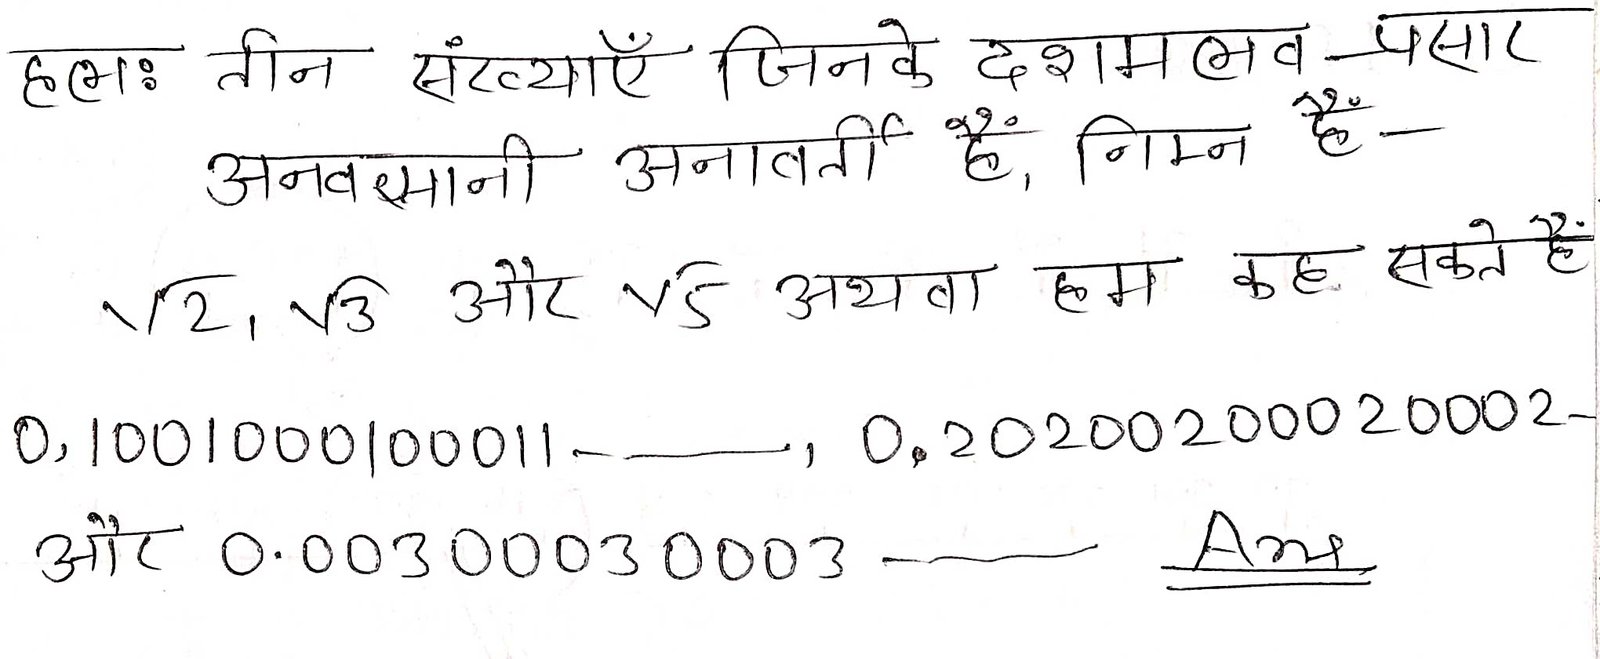 हलः तीन संख्याएँ जिनके दशमलव प्रसार
अनवसानी अनावर्ती हैं, निम्न हैं-
√2, √3 और √5 अथवा हम कह सकते हैं
0.1001000100011-——, 0.20200200020002-
और 0.00300030003 —— Ans